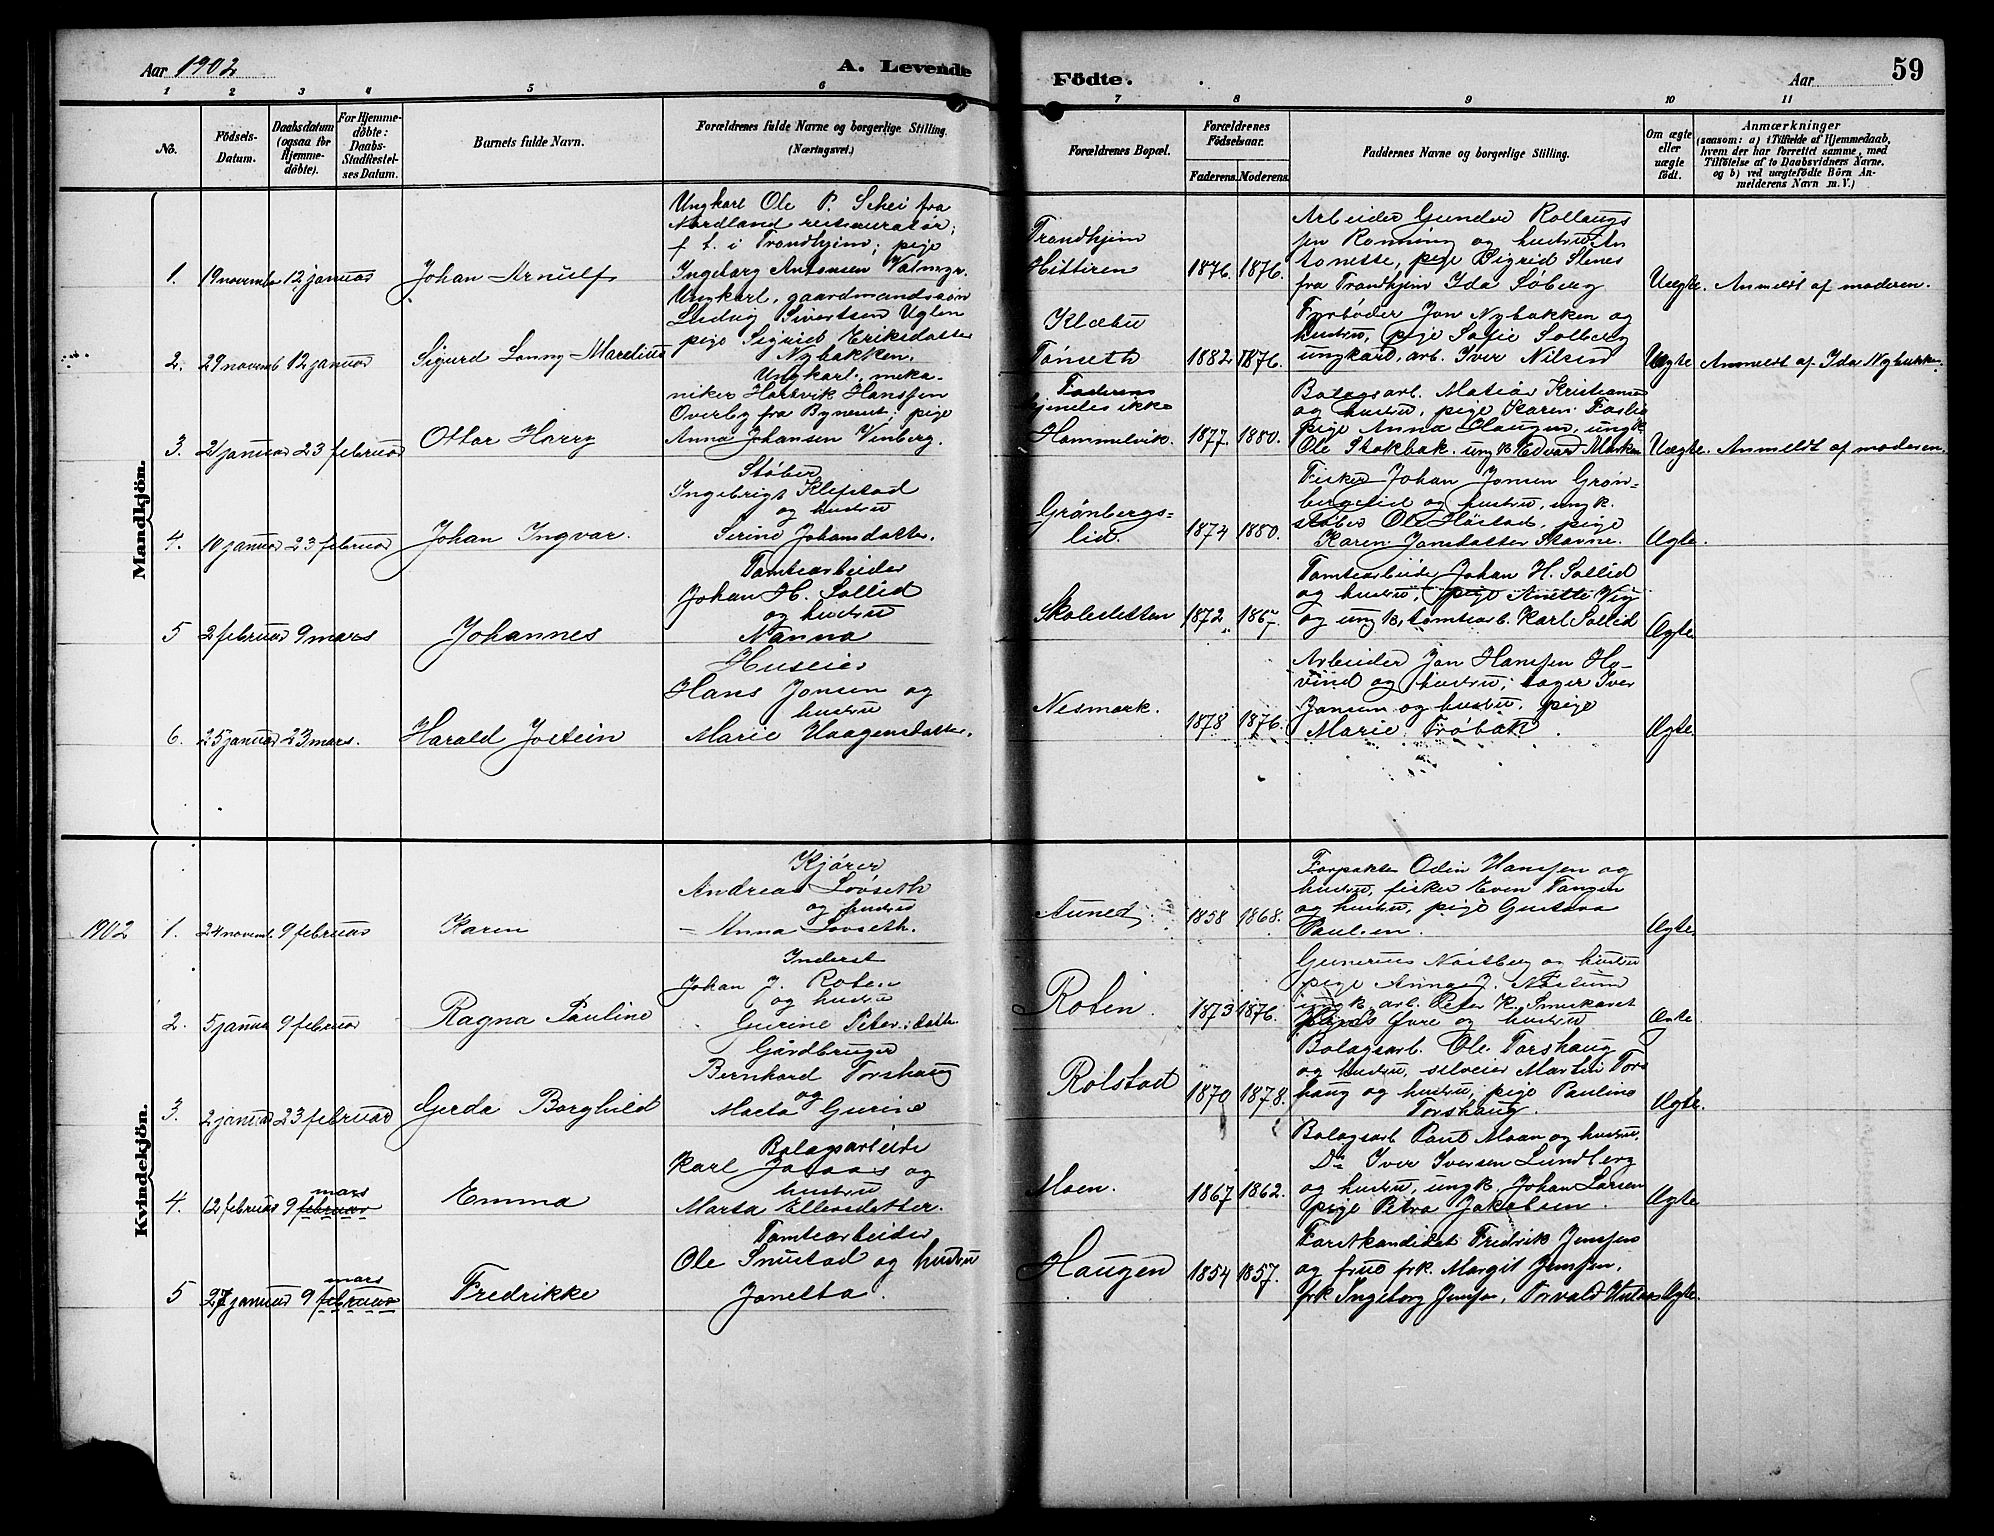 Aar 1902
A. Levende
Födte.
Aar
59
1 2 3 4 5 6 7 8 9 10 11
No.
Födsels-
Datum.
Daabsdatum
(ogsaa for
Hjemme-
döbte).
For Hjemme-
döbte:
Daabs-
Stadfæstel-
ses Datum.
Barnets fulde Navn.
Forældrenes fulde Navne og borgerlige Stilling.
(Næringsvei.)
Forældrenes Bopæl.
Forældrenes
Födselsaar.
Faderens. Moderens.
Faddernes Navne og borgerlige Stilling.
Om ægte
eller
uægte
födt.
Anmærkninger
(saasom: a) i Tilfælde af Hjemmedaab,
hvem der har forrettet samme, med
Tilföielse af to Daabsvidners Navne,
og b) ved uægtefödte Börn An-
melderens Navn m. V.)
Mandkjön.
1. 19 novembr 12 januar Johan Arnulf
Ungkarl Ole P. Schei fra
Nordland restauratør;
f. t. i Trondhjem; pige
Ingeborg Antonsen
Trondhjem
Hitteren
1876. 1876.
Arbeider Gunder Rollaugs
sen Rønning og hustru An
tonette, pige Sigrid Stenes
fra Trondhjem Ida Søberg
Uægte. Anmeldt af moderen.
2. 29 novemb 12 januar Sigurd Marelius
Ungkarl, gaardmandssøn
Ludvig Sivertsen Uglen
pige Sigrid Eriksdatter
Nybakken.
Klæbu
Tønseth
1882 1876.
Fyrbøder Jon Nybakken og
hustru, pige Sofie Solberg
ungkarl, arb. Iver Nilsen
Uægte Anmeldt af Ida Nybakke.
3. 2 januar 23 februar Ottar Harry
Ungkarl, meka-
niker Hartvik Hanssen
Overby fra Byneset; pige
Anna Johansen Vinberg.
Faderens
kjendes ikke
Hommelvik.
1877. 1880.
Bolagsarb. Matias Kristiansen
og hustru, pige Karen Foslie
pige Anna Haugen, ungk.
Ole Stokbak. ungk Edvard
Uægte. Anmeldt af moderen.
4. 10 januar 23 februar Johan Ingvar.
Støber
Ingebrigt Klefstad
og hustru
Serine Johansdatter.
Grønbergs-
lid.
1874 1880.
Fisker Johan Jonsen Grøn-
bergslid og hustru, ungk.
støber Ole pige
Karen Jonsdatter Stavne.
Ægte.
5 2 februar 9 mars Johannes
Tomtearbeider
Johan H. Sollid
og hustru
Nanna
Skolesletten
1872 1867.
Tomtearbeider Johan H. Sollid
og hustru, pige Anette Vig
og ungk, tomtearb. Karl Sollid
Ægte
6. 25 januar 23 mars. Harald Jostein
Huseier
Hans Jonsen og
hustru
Marie Haagensdatter.
Nesmark.
1878 1876.
Arbeider Jon Hanssen Ho-
vind og hustru, bager Iver
Jansen og hustru, pige
Marie Trøbak.
Ægte
Kvindekjön.
1902 1. 24 novemb. 9 februar Karen
Kjører
Andreas Lovseth
og hustru
Anna Lovseth.
Auned
1858 1868.
Forpakter Odin Hanssen og
hustru, fisker Even Tangen
og hustru, pige Gustava
Paulsen.
Ægte
2. 5 januar 9 februar Ragna Pauline
Inderst
Johan J. Roten
og hustru
Gurine Petersdatter
Rotin.
1873 1876.
Gunerius og hustru
pige Anna J.
ungk. arb. Peter K.
og hustru
Ægte
3. 2 januar 23 februar Gerda Borghild
Gårdbruger
Bernhard Torshaug
og
Marta Gurine
Rolstad
1870 1878.
Bolagsarb. Ole Torshaug
og hustru, selveier Martin Tors
haug og hustru, pige Pauline
Torshaug.
Ægte.
4. 12 februar 9 mars februar Emma
Bolagsarbeider
Karl og
hustru
Marta Ellevsdatter.
Moen.
1867 1862.
Bolagsarb Paul Moan og hustru.
Do Iver Iversen Lundberg
og hustru, ungk. Johan Larsen
pige Petra Jakobsen.
Ægte
5 27 januar 9 mars februar Fredrikke
Tomtearbeider
Ole Snustad og hustru
Janetta.
Haugen
1854 1857.
Forstkandidat Fredrik Jenssen
og frue frk. Margit Jenssen,
frk Ingeborg Jenssen, Torvald
Ægte.